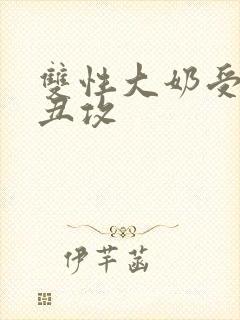 雙性大奶受
丑攻
伊芊菡